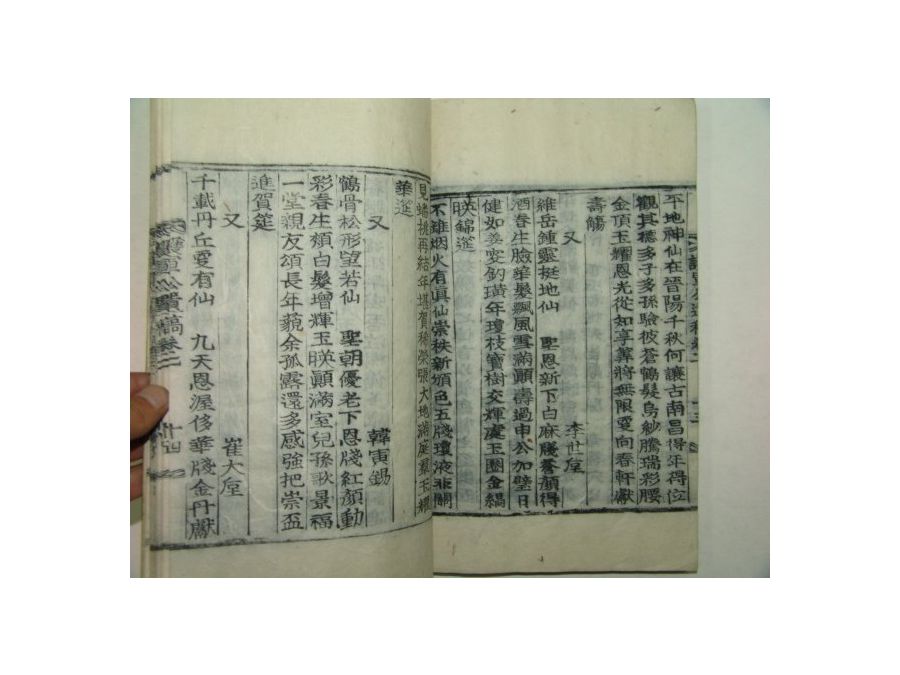 平地神仙在晉陽千秋何讓古南昌得年得位
觀其德多子多孫驗彼蒼鶴髮烏紗騰瑞彩腰
金頂玉耀恩光從知享筭將無限更向春軒獻
壽觴
又 李世垕
維岳鍾靈挺地仙 聖恩新下白麻牋蒼顏得
酒春生臉華髮飄風雪滿顚壽過申公加璧日
健如姜叟釣璜年瓊枝寶樹交輝處玉圈金縞
暎錦筵
不離烟火有眞仙崇秩新頒色五牋瓊液非關
見蟠桃再結年堪賀稀榮張大地滿座羣玉耀
華筵
又 韓寅錫
鶴骨松形望若仙 聖朝優老下恩牋紅顏動
彩春生頰白髮增輝玉暎顚滿室兒孫歌景福
一堂親友頌長年藐余孤露還多感強把崇盃
進賀筵
又 崔大垕
千載丹丘更有仙 九天恩渥侈華牋金丹獻
遺稿卷二 十四